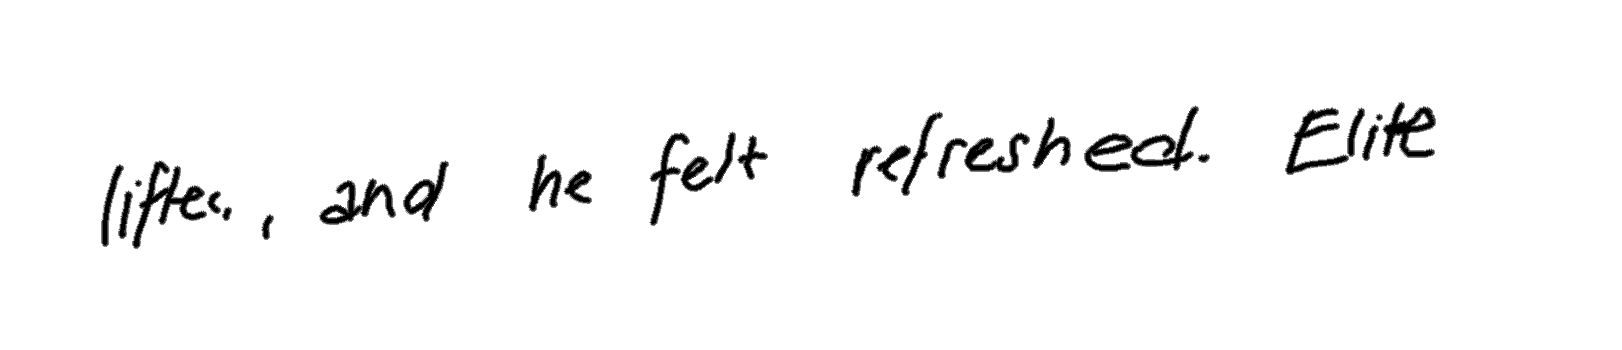 lifted, and he felt refreshed. Elite